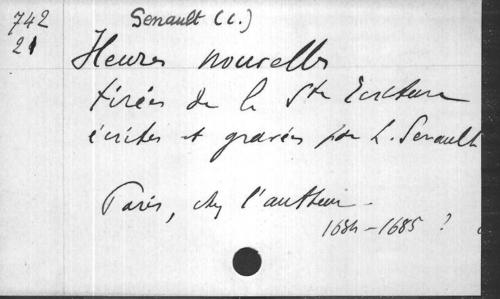 742
21
Senault (L.)
Heures nouvelles
tirées de la Ste Ecriture
écrites et gravées par L. Senault
Paris, chez l'autheur.
1684-1685 ?